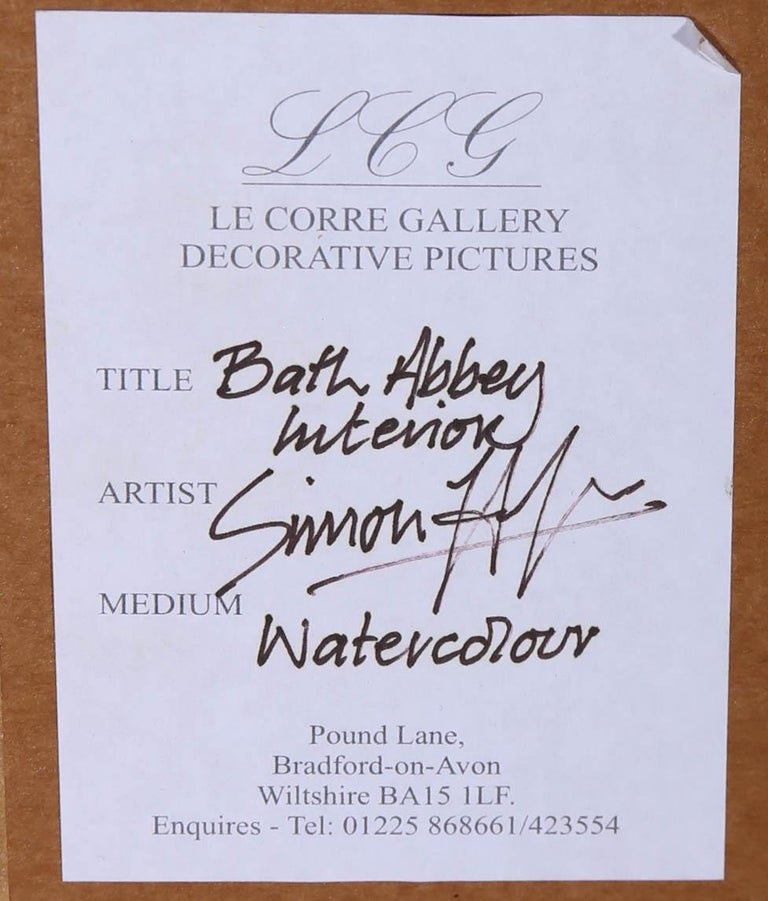 LCG
LE CORRE GALLERY
DECORATIVE PICTURES
TITLE Bath Abbey
Interior
ARTIST Simon
MEDIUM
Watercolour
Pound Lane,
Bradford-on-Avon
Wiltshire BA15 1LF.
Enquires - Tel: 01225 868661/423554